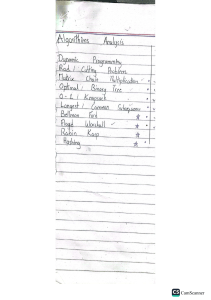 Algorithms Analysis
Dynamic Programming
Rod Cutting Problem
Matrix Chain Multiplication
Optimal Binary Tree
0-1 Knapsack
Longest Common Subsequence
Bellman Ford *
Floyd Warshall *
Rabin Karp *
Hashing *
CS CamScanner